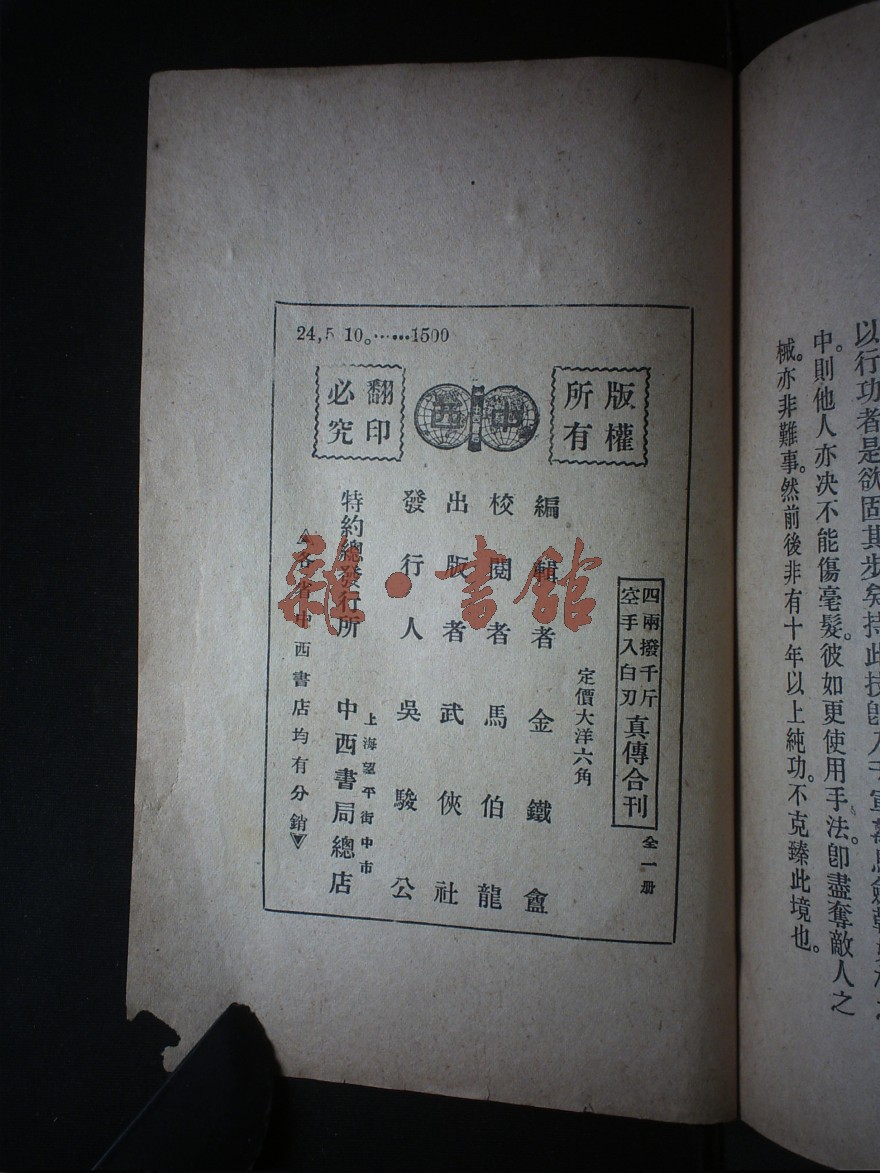 以行功者是欲固其步矣持此技卽入千軍萬馬
中。則他人亦決不能傷毫髮。彼如更使用手法。卽盡奪敵人之
械。亦非難事。然前後非有十年以上純功。不克臻此境也。
24,5 10。……1500
版權所有
中西
翻印必究
四兩撥千斤
空手入白刃
真傳合刊
全一册
定價大洋六角
編輯者金鐵盦
校閱者馬伯龍
出版者武俠社
發行人吳駿公
特約總發行所
上海望平街中市
中西書局總店
各省中西書店均有分銷
雜·書館